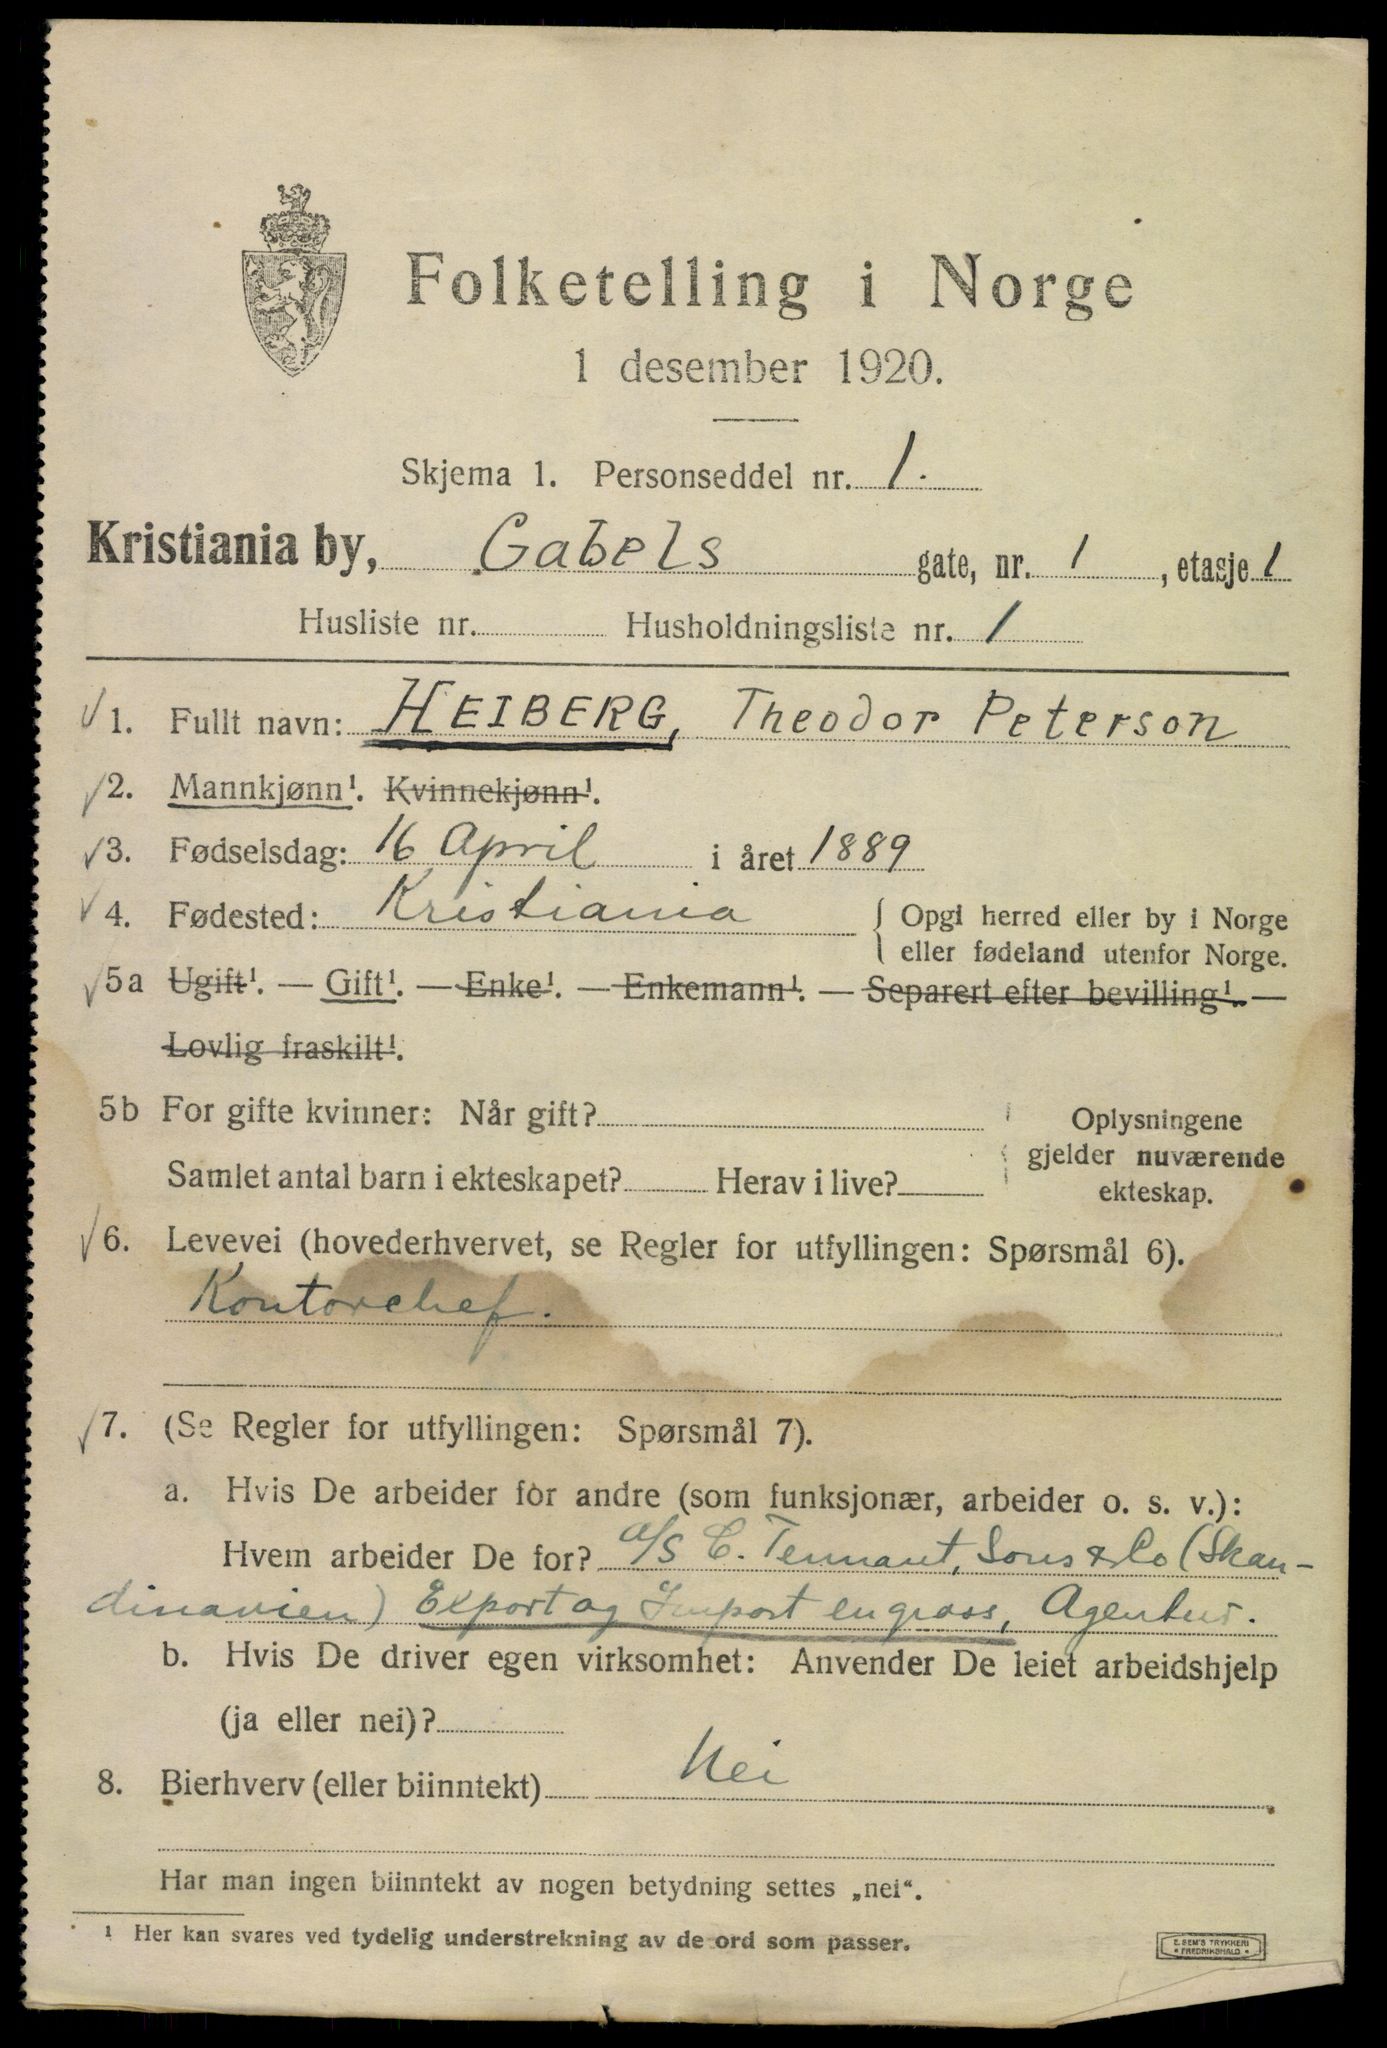 Folketelling i Norge
1 desember 1920.
Skjema 1. Personseddel nr. 1.
Kristiania by, Gabels gate, nr. 1, etasje 1
Husliste nr. Husholdningsliste nr. 1
1. Fullt navn: HEIBERG, Theodor Peterson
2. Mannkjønn¹. Kvinnekjønn¹.
3. Fødselsdag: 16 April i året 1889
4. Fødested: Kristiania { Opgi herred eller by i Norge
eller fødeland utenfor Norge.
5a Ugift¹. — Gift¹. — Enke¹. — Enkemann¹. — Separert efter bevilling¹. —
Lovlig fraskilt¹.
5b For gifte kvinner: Når gift? Oplysningene
gjelder nuværende
Samlet antal barn i ekteskapet? Herav i live? ekteskap.
6. Levevei (hovederhvervet, se Regler for utfyllingen: Spørsmål 6).
Kontorchef.
7. (Se Regler for utfyllingen: Spørsmål 7).
a. Hvis De arbeider for andre (som funksjonær, arbeider o. s. v.):
Hvem arbeider De for? A/S C. Tennant, Sons & Co (Skan-
dinavien) Export og Import en gross, Agentur.
b. Hvis De driver egen virksomhet: Anvender De leiet arbeidshjelp
(ja eller nei)?
8. Bierhverv (eller biinntekt) Nei
Har man ingen biinntekt av nogen betydning settes „nei“.
¹ Her kan svares ved tydelig understrekning av de ord som passer.
E. SEM'S TRYKKERI
• FREDRIKSHALD •